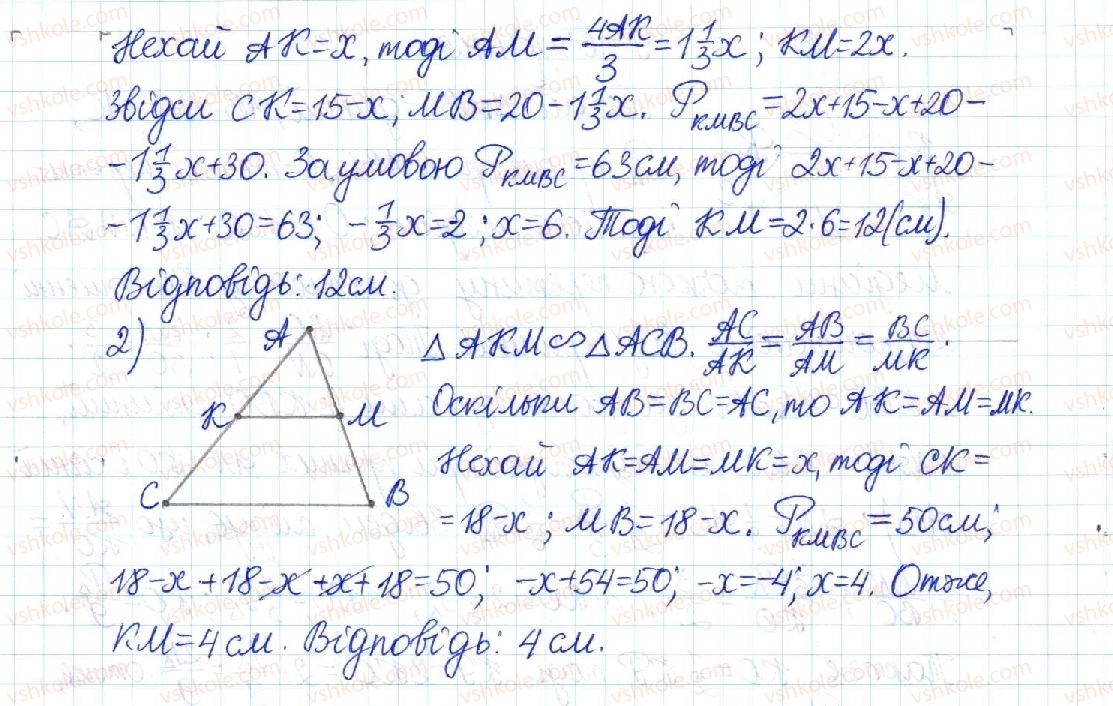 Нехай AK=x, тоді AM = 4AK/3 = 1 1/3 x; KM=2x.
Звідси CK=15-x; MB=20-1 1/3 x. P_KMBC=2x+15-x+20-
-1 1/3 x+30. За умовою P_KMBC=63см, тоді 2x+15-x+20-
-1 1/3 x+30=63; -1/3 x=2; x=6. Тоді KM=2·6=12(см).
Відповідь: 12см.
2)
A
K
M
C
B
△AKM∽△ACB. AC/AK = AB/AM = BC/MK.
Оскільки AB=BC=AC, то AK=AM=MK.
Нехай AK=AM=MK=x, тоді CK=
=18-x; MB=18-x. P_KMBC=50см;
18-x+18-x+x+18=50; -x+54=50; -x=-4; x=4. Отже,
KM=4см. Відповідь: 4см.